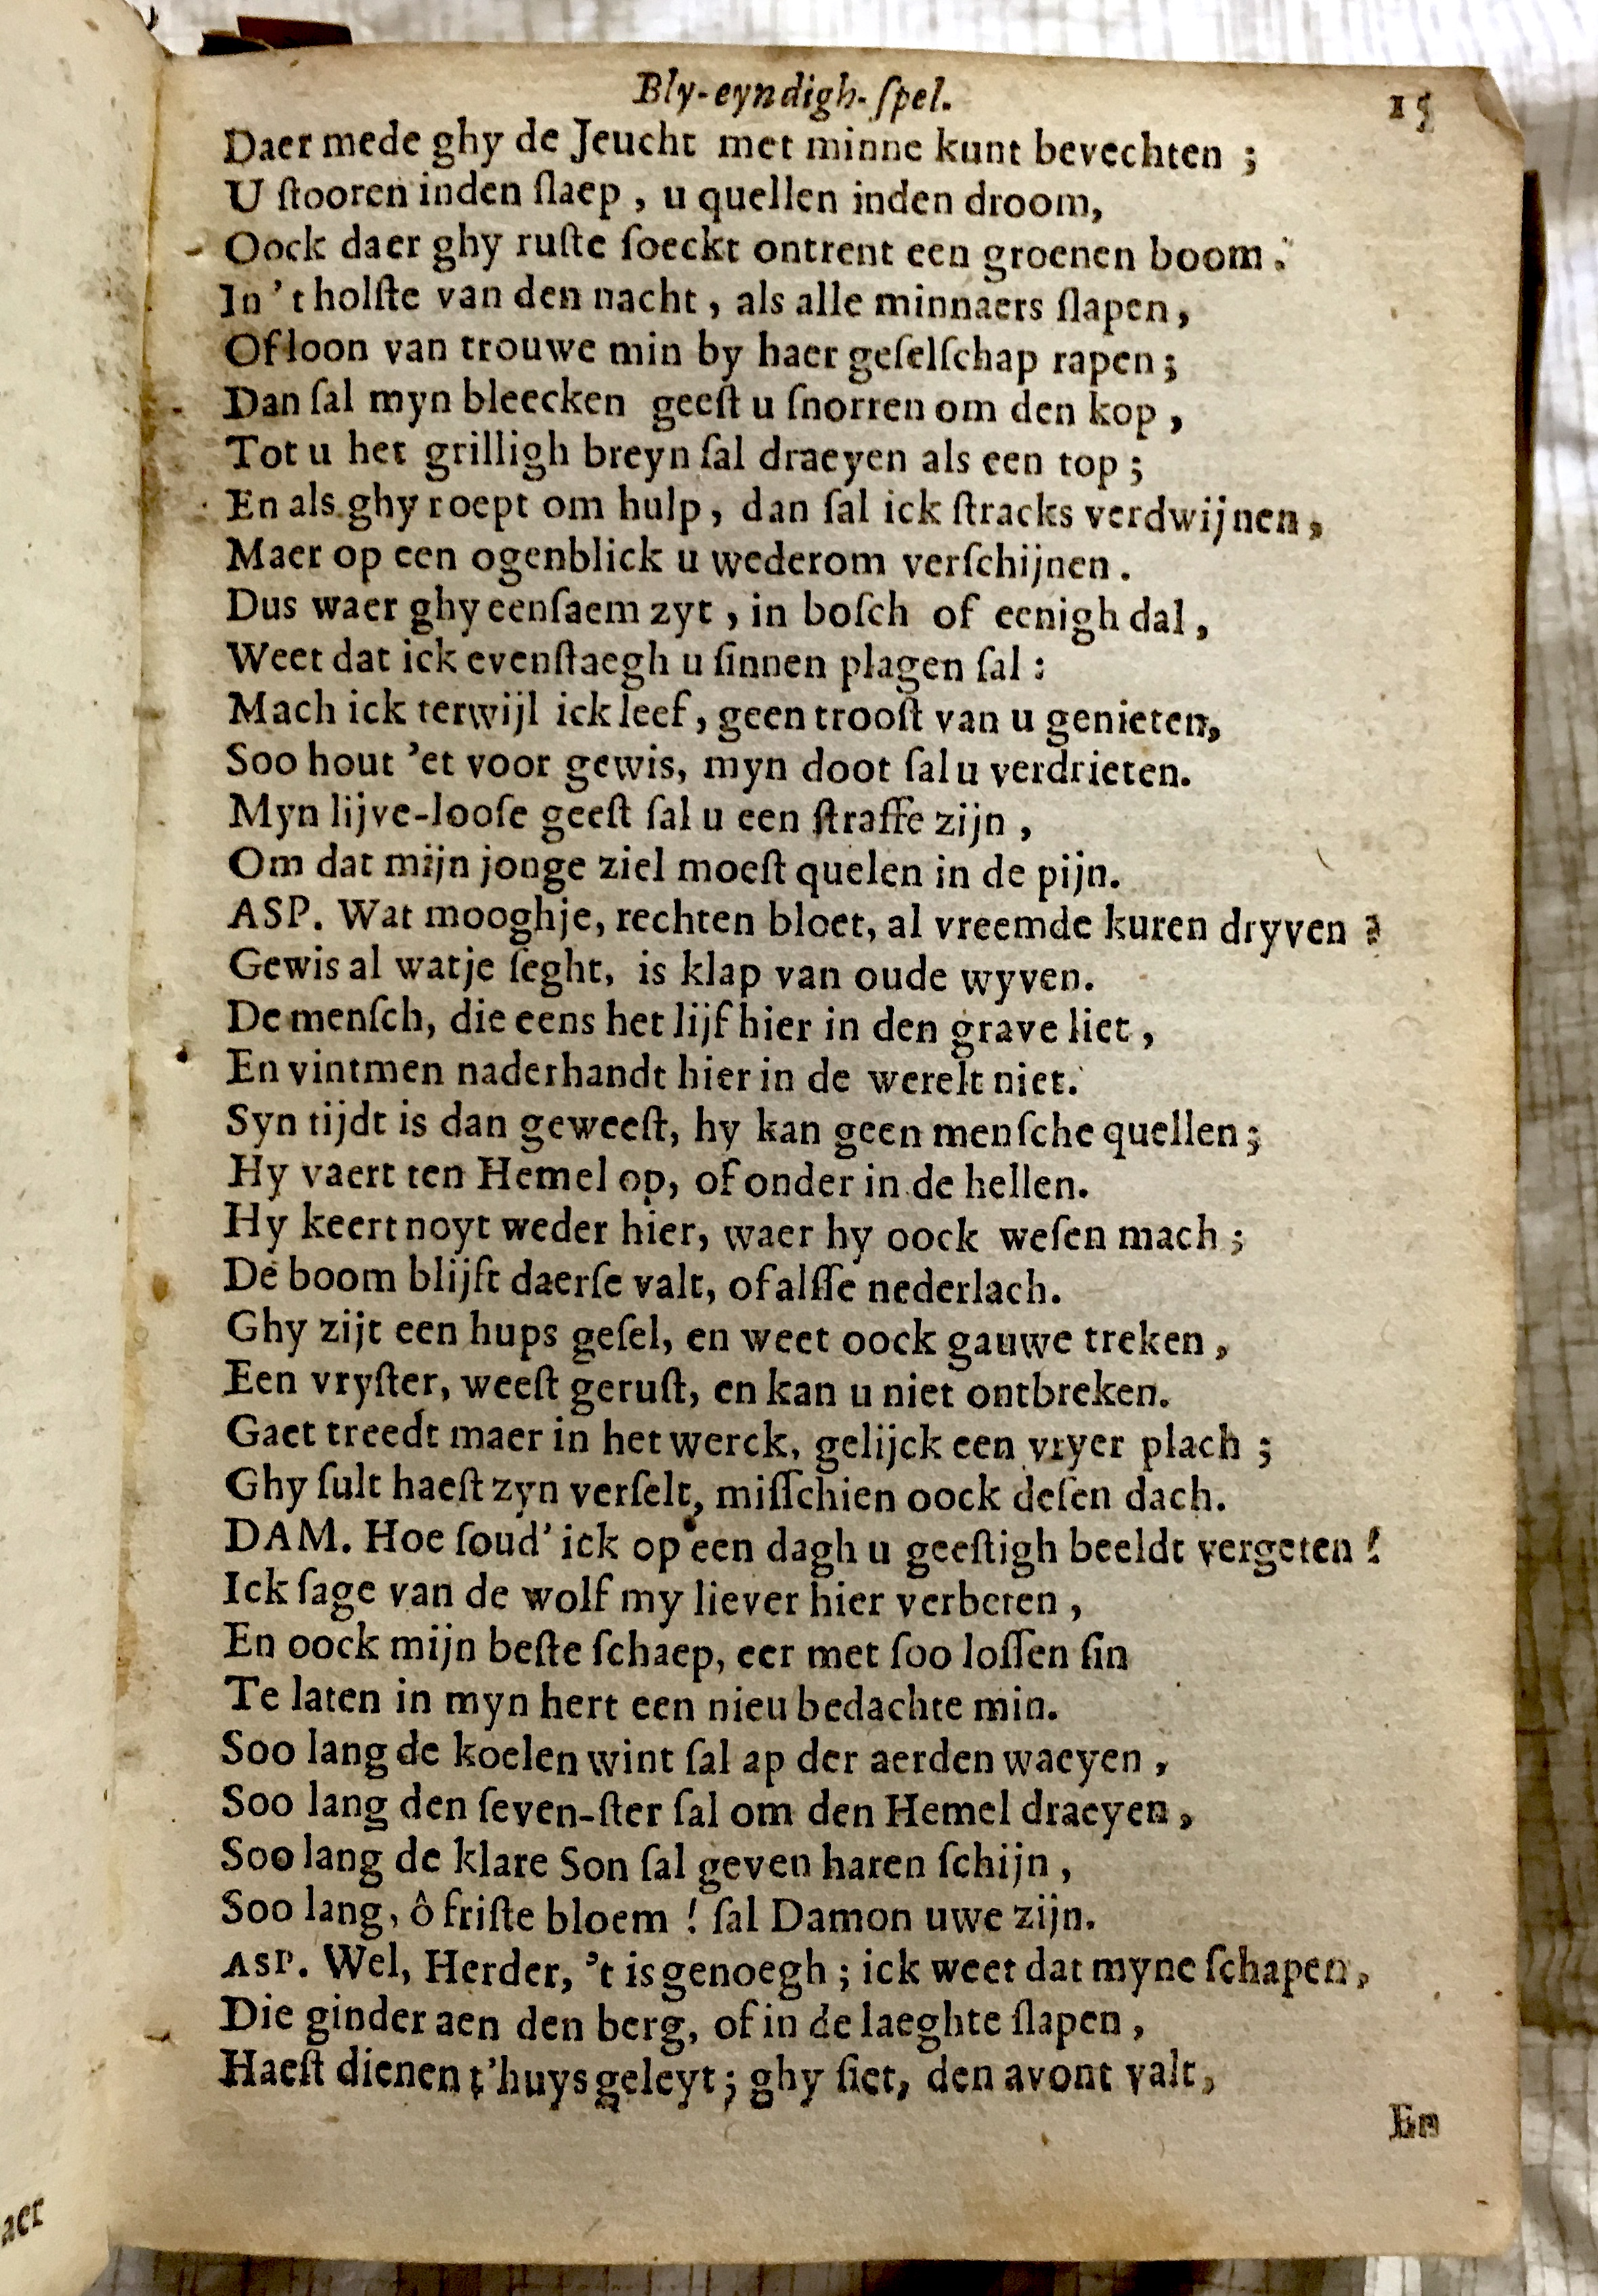 Bly-eyndigh-ſpel. 15
Daer mede ghy de Jeucht met minne kunt bevechten ;
U ſtooren inden ſlaep , u quellen inden droom,
Oock daer ghy ruſte ſoeckt ontrent een groenen boom .
In 't holſte van den nacht , als alle minnaers ſlapen ,
Of loon van trouwe min by haer geſelſchap rapen ;
Dan ſal myn bleecken geeſt u ſnorren om den kop ,
Tot u het grilligh breyn ſal draeyen als een top ;
En als ghy roept om hulp , dan ſal ick ſtracks verdwijnen ,
Maer op een ogenblick u wederom verſchijnen .
Dus waer ghy eenſaem zyt , in boſch of eenigh dal ,
Weet dat ick evenſtaegh u ſinnen plagen ſal :
Mach ick terwijl ick leef , geen trooſt van u genieten,
Soo hout 'et voor gewis, myn doot ſal u verdrieten.
Myn lijve-looſe geeſt ſal u een ſtraffe zijn ,
Om dat mijn jonge ziel moeſt quelen in de pijn.
ASP. Wat mooghje, rechten bloet, al vreemde kuren dryven ?
Gewis al watje ſeght, is klap van oude wyven.
De menſch, die eens het lijf hier in den grave liet ,
En vintmen naderhandt hier in de werelt niet.
Syn tijdt is dan geweeſt, hy kan geen menſche quellen ;
Hy vaert ten Hemel op, of onder in de hellen.
Hy keert noyt weder hier, waer hy oock weſen mach ;
De boom blijft daerſe valt, of alſſe nederlach.
Ghy zijt een hups geſel, en weet oock gauwe treken ,
Een vryſter, weeſt geruſt, en kan u niet ontbreken.
Gaet treedt maer in het werck, gelijck een vryer plach ;
Ghy ſult haeſt zyn verſelt, miſſchien oock deſen dach.
DAM. Hoe ſoud' ick op een dagh u geeſtigh beeldt vergeten !
Ick ſage van de wolf my liever hier verbeten ,
En oock mijn beſte ſchaep, eer met ſoo loſſen ſin
Te laten in myn hert een nieu bedachte min.
Soo lang de koelen wint ſal ap der aerden waeyen ,
Soo lang den ſeven-ſter ſal om den Hemel draeyen ,
Soo lang de klare Son ſal geven haren ſchijn ,
Soo lang, ô friſte bloem ! ſal Damon uwe zijn.
ASP. Wel, Herder, 't is genoegh ; ick weet dat myne ſchapen ,
Die ginder aen den berg, of in de laeghte ſlapen ,
Haeſt dienen t'huys geleyt ; ghy ſiet, den avont valt ,
En
aer